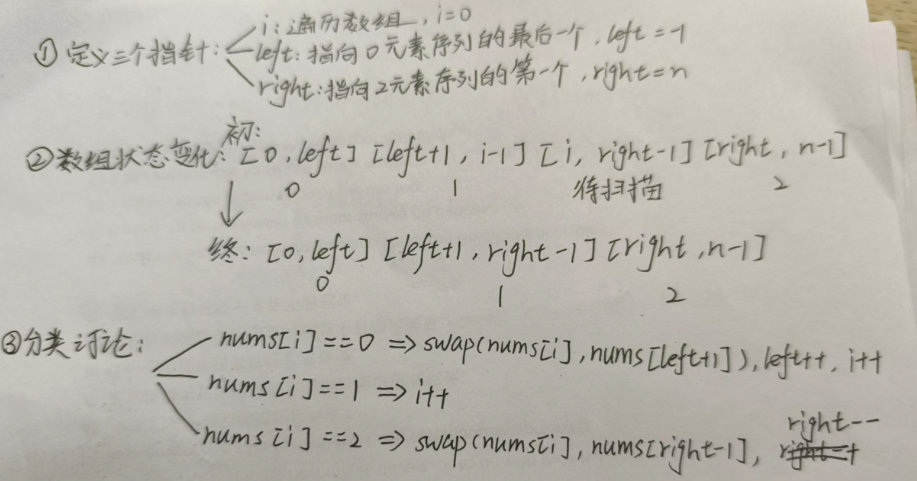 i:遍历数组,i=0
①定义三个指针:left:指向0元素序列的最后一个,left=-1
right:指向2元素序列的第一个,right=n
初:
②数组状态变化:[0,left][left+1,i-1][i,right-1][right,n-1]
0 1 待扫描 2
终:[0,left][left+1,right-1][right,n-1]
0
1 2
③分类讨论:
nums[i]==0=>swap(nums[i],nums[left+1]),left++,i++
nums[i]==1=>i++
right--
nums[i]==2=>swap(nums[i],nums[right-1],